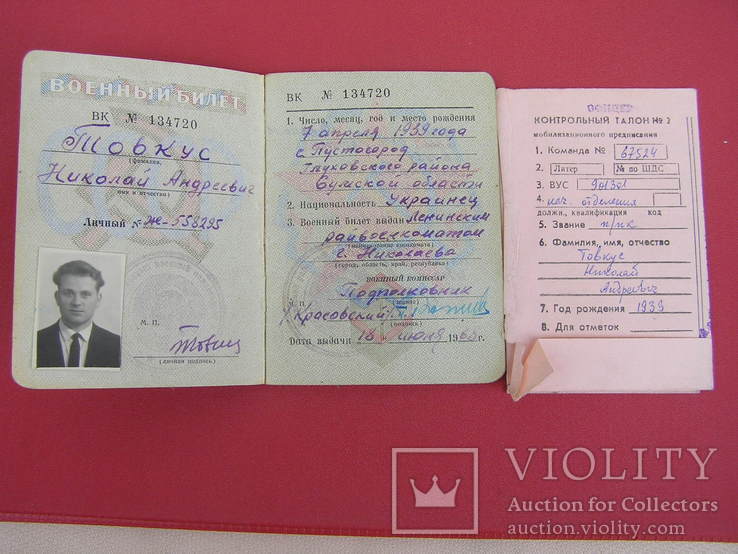 ВОЕННЫЙ БИЛЕТ
ВК № 134720
Товкус
(фамилия,
Николай Андреевич
имя и отчество)
Личный № Ж-558295
М. П.
(личная подпись)
ВК № 134720
1. Число, месяц, год и место рождения
7 апреля 1939 года
с. Пустогород
Глуховского района
Сумской области
2. Национальность Украинец
3. Военный билет выдан Ленинским
райвоенкоматом
(наименование военкомата)
г. Николаева
(город, область, край, республика)
ВОЕННЫЙ КОМИССАР
Подполковник
М. П. (звание)
/Красовский/
(подпись)
Дата выдачи 18 июля 1965г.
КОНТРОЛЬНЫЙ ТАЛОН № 2
мобилизационного предписания
1. Команда № 67524
2. Литер № по ШДС
3. ВУС
4. нач. отделения
должн., квалификация код
5. Звание п/пк
6. Фамилия, имя, отчество
Товкус
Николай
Андреевич
7. Год рождения 1939
8. Для отметок
VIOLITY
Auction for Collectors
auction.violity.com